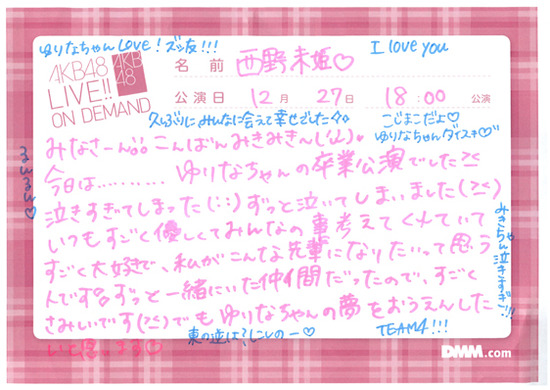 ゆりなちゃんLOVE!ズッ友!!!
I love you
AKB48
LIVE!!
ON DEMAND
AKB
48
名前 西野未姫♡
公演日 12月 27日 18:00 公演
久しぶりにみんなに会えて幸せでした
こじまこだよ♡
ゆりなちゃんダイスキ♡
みなさーん。こんばんみきみきーし
今日は………ゆりなちゃんの卒業公演でした
泣きすぎてしまった(;;)ずっと泣いてしまいました(><)
いつもすごく優しくてみんなの事考えてくれていて
すごく大好きで、私がこんな先輩になりたいって思う
人です。ずっと一緒にいた仲間だったので、すごく
さみしいです(><)でもゆりなちゃんの夢をおうえんした
いと思います♡
みきちゃん泣きすぎ!!!
東の逆は?にしのー♡
TEAM4!!!
DMM.com